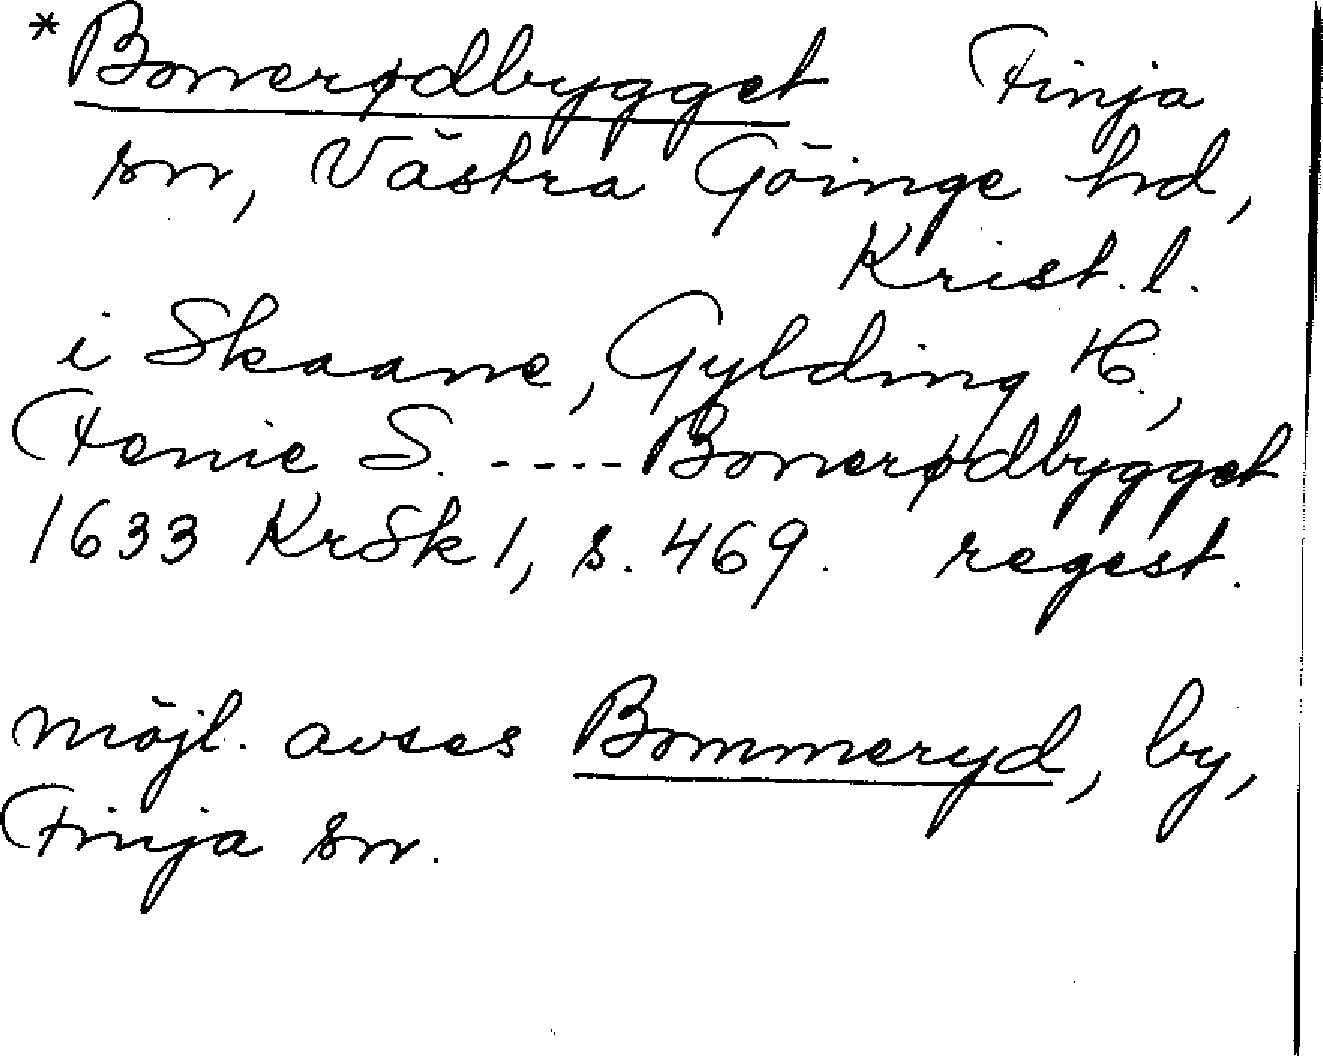 *Bonnerødbygget Finja
sn, Västra Göinge hd,
Krist. l.
i Skaane, Gylding H.,
Fenie S. ---- Bonnerødbygget
1633 KrSk 1, s. 469. regest.
möjl. avses Bommeryd, by,
Finja sn.